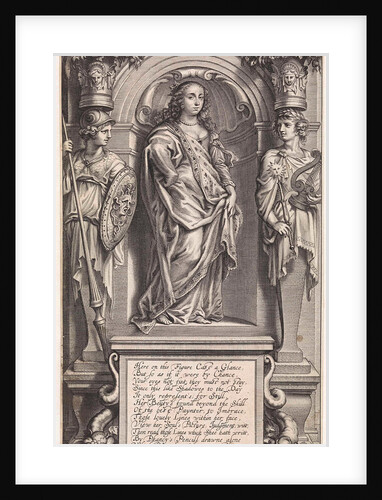 Here on this Figure Cast a Glance.
But so as if it were by Chance,
Your eyes not fixt, they must not Stay,
Since this like Shadowes to the Day
It only represent's; for Still,
Her Beuty's found beyond the Skill
Of the best Paynter, to Imbrace,
These lovely Lines within her face.
View her Soul's Picture, Judgment, witt,
Then read those Lines which Shee hath writt,
By Phancy's Pencill drawne alone